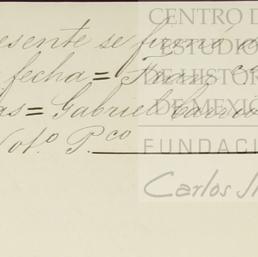 esente se firmó
fecha = Fran.co
as = Gabriel
Not.o P.co
CENTRO D
ESTUDIO
DE HISTOR
DE MEXIC
FUNDACI
Carlos Sl